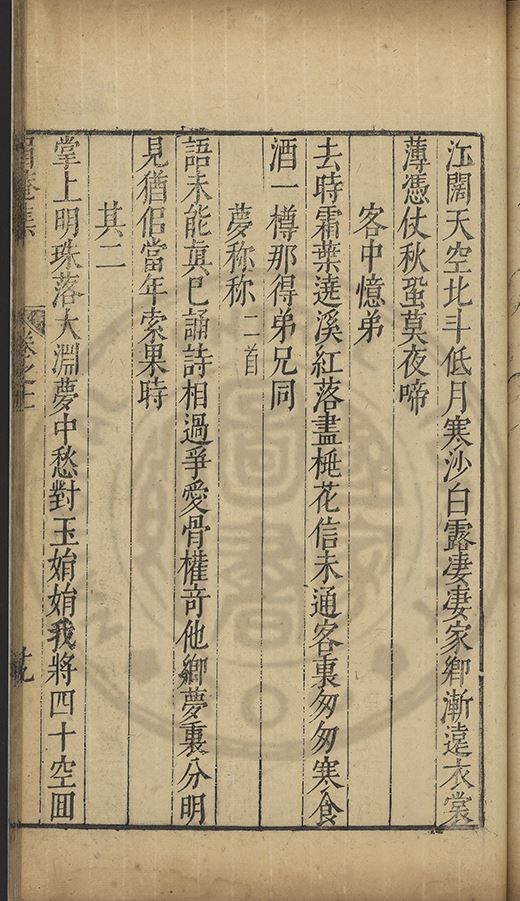 江闊天空北斗低月寒沙白露凄凄家鄉漸遠衣裳
薄憑仗秋蛩莫夜啼
客中憶弟
去時霜葉遶溪紅落盡桃花信未通客裏匆匆寒食
酒一樽那得弟兄同
夢称称二首
語未能真已誦詩相過爭愛骨權竒他鄉夢裏分明
見猶侣當年索果時
其二
掌上明珠落大淵夢中愁對玉娟娟我將四十空回
卷之